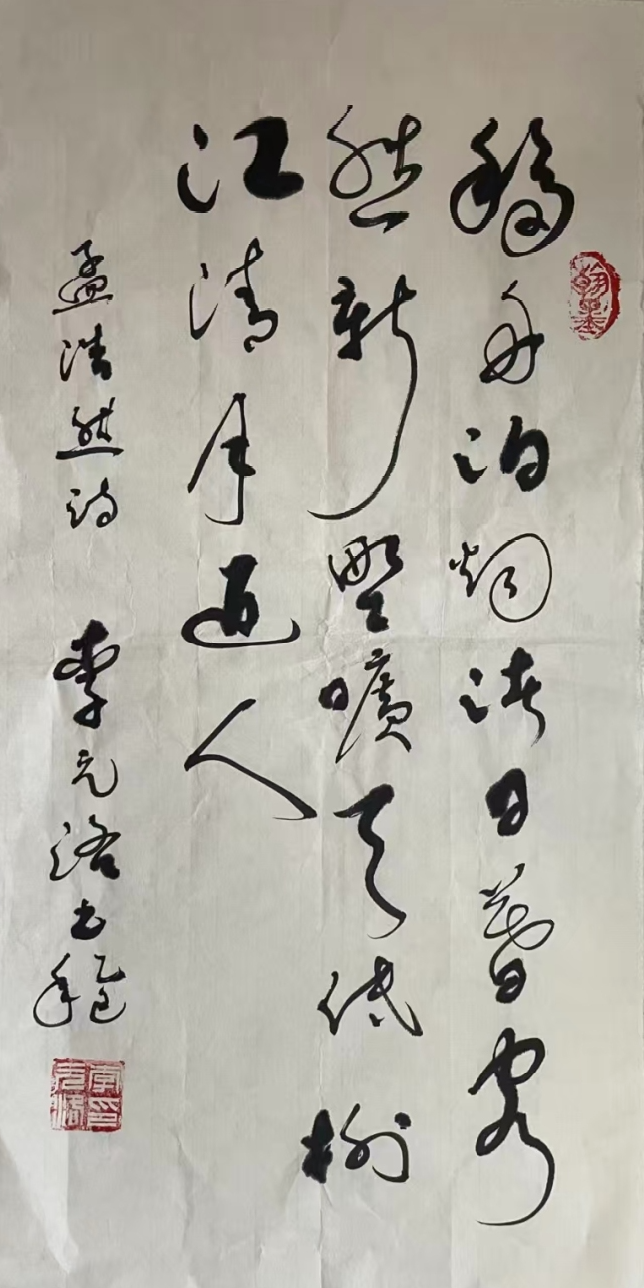 移舟泊烟渚日暮客
愁新野曠天低树
江清月近人
孟浩然诗 李元洛书
翰墨